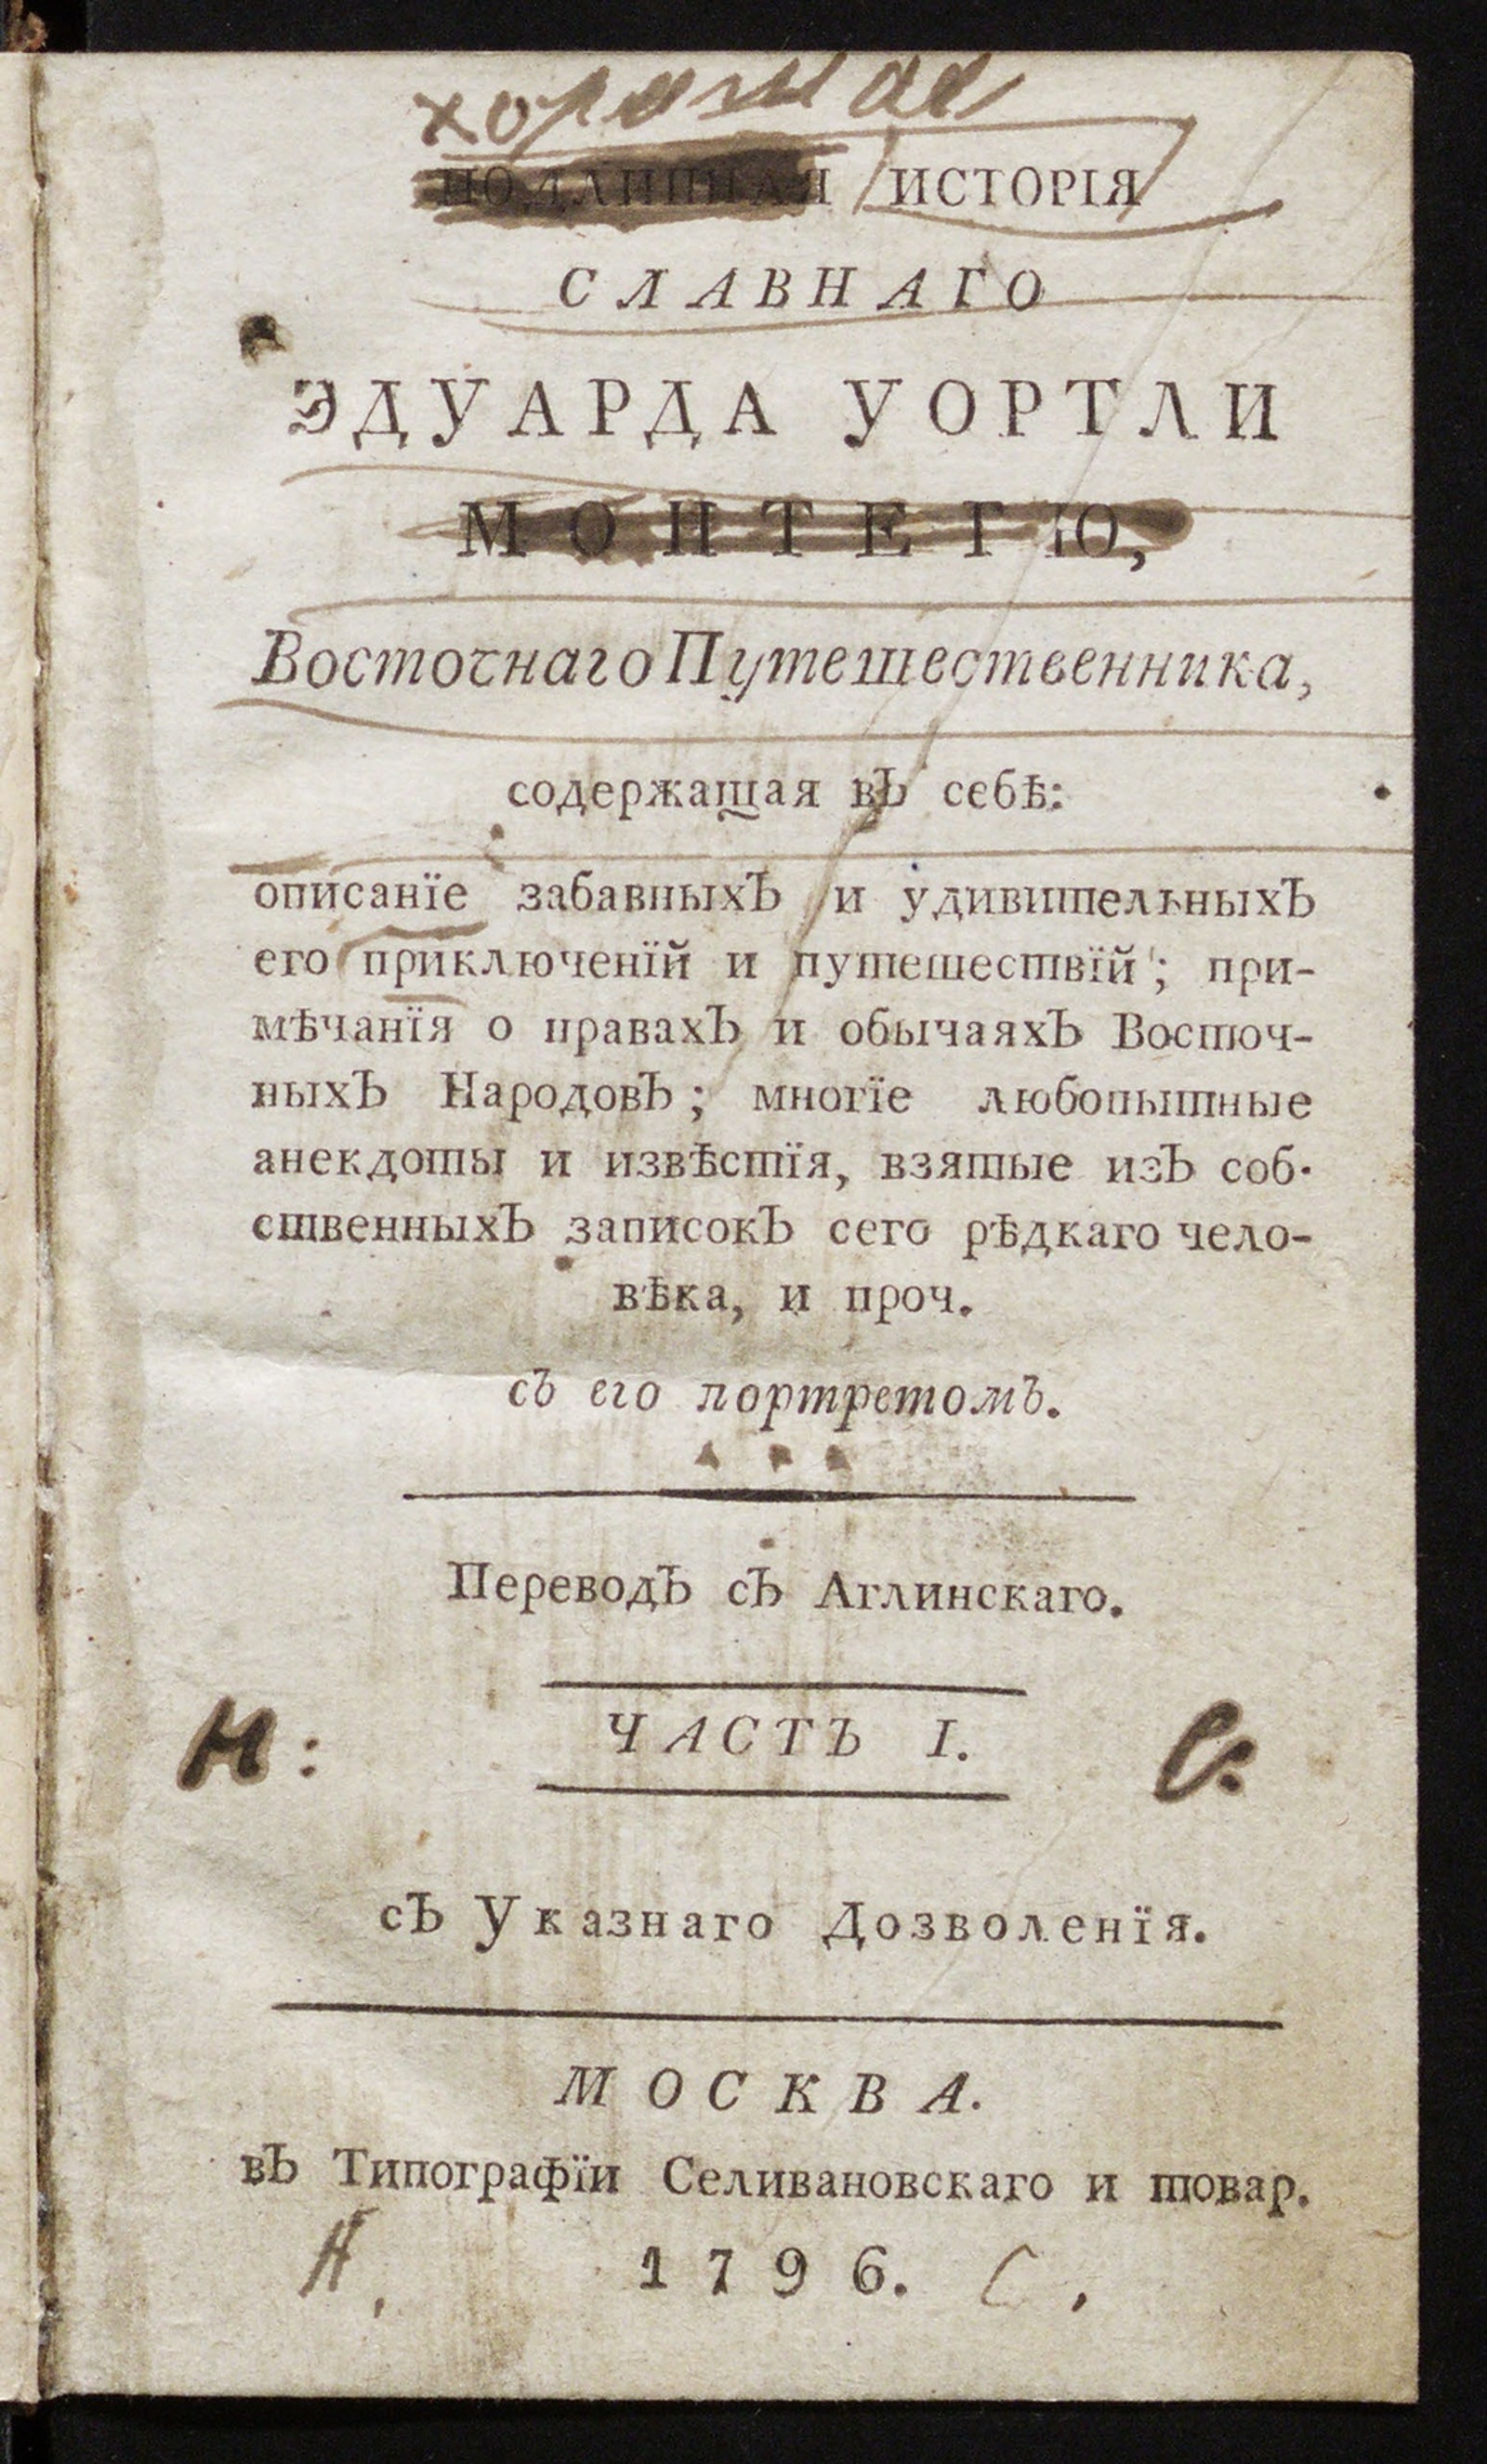 хорошае
ПОДЛИННАЯ ИСТОРІЯ
СЛАВНАГО
ЭДУАРДА УОРТЛИ
МОНТЕГЮ,
Восточнаго Путешественника,
содержащая въ себѣ:
описанїе забавныхъ и удивительныхъ
его приключенїй и путешествїй; при-
мѣчанїя о нравахъ и обычаяхъ Восточ-
ныхъ Народовъ; многїе любопытные
анекдоты и извѣстїя, взятые изъ соб-
ственныхъ записокъ сего рѣдкаго чело-
вѣка, и проч.
съ его портретомъ.
Переводъ съ Аглинскаго.
Н: ЧАСТЬ I. С:
съ Указнаго Дозволенїя.
МОСКВА.
въ Типографїи Селивановскаго и товар.
Н. 1796. С.